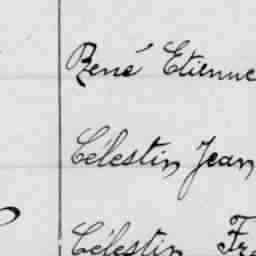 René Etienne
Célestin Jean
Célestin Fra